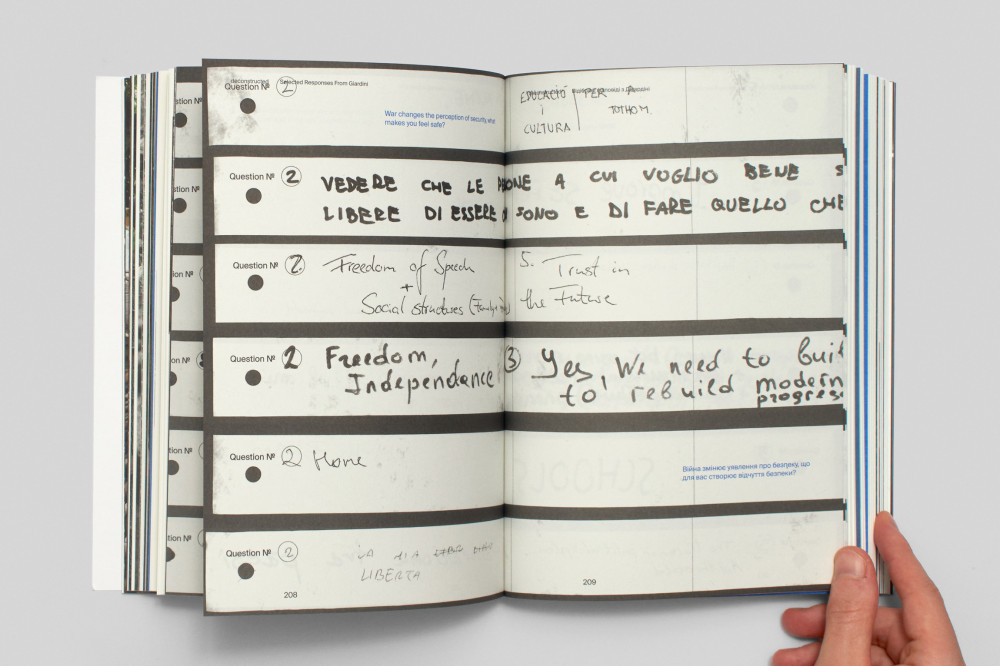 deconstructed Selected Responses From Giardini
Question № 2
War changes the perception of security, what
makes you feel safe?
EDUCACIÓ PER A
i TOTHOM.
CULTURA
Question № 2
VEDERE CHE LE A CUI VOGLIO BENE S
LIBERE DI ESSERE SONO E DI FARE QUELLO CHE
Question № 2.
Freedom of Speech
+
Social structures
5. Trust in
the Future
Question № 2
Freedom,
Independance
3 Yes, We need to buil
to, rebuild modern
progres
Question № 2 Home
SCHOOLS
Війна змінює уявлення про безпеку, що
для вас створює відчуття безпеки?
Question № 2
LA MIA
LIBERTA
208
209
stion №
stion №
ion №
on №
tion №
tion №